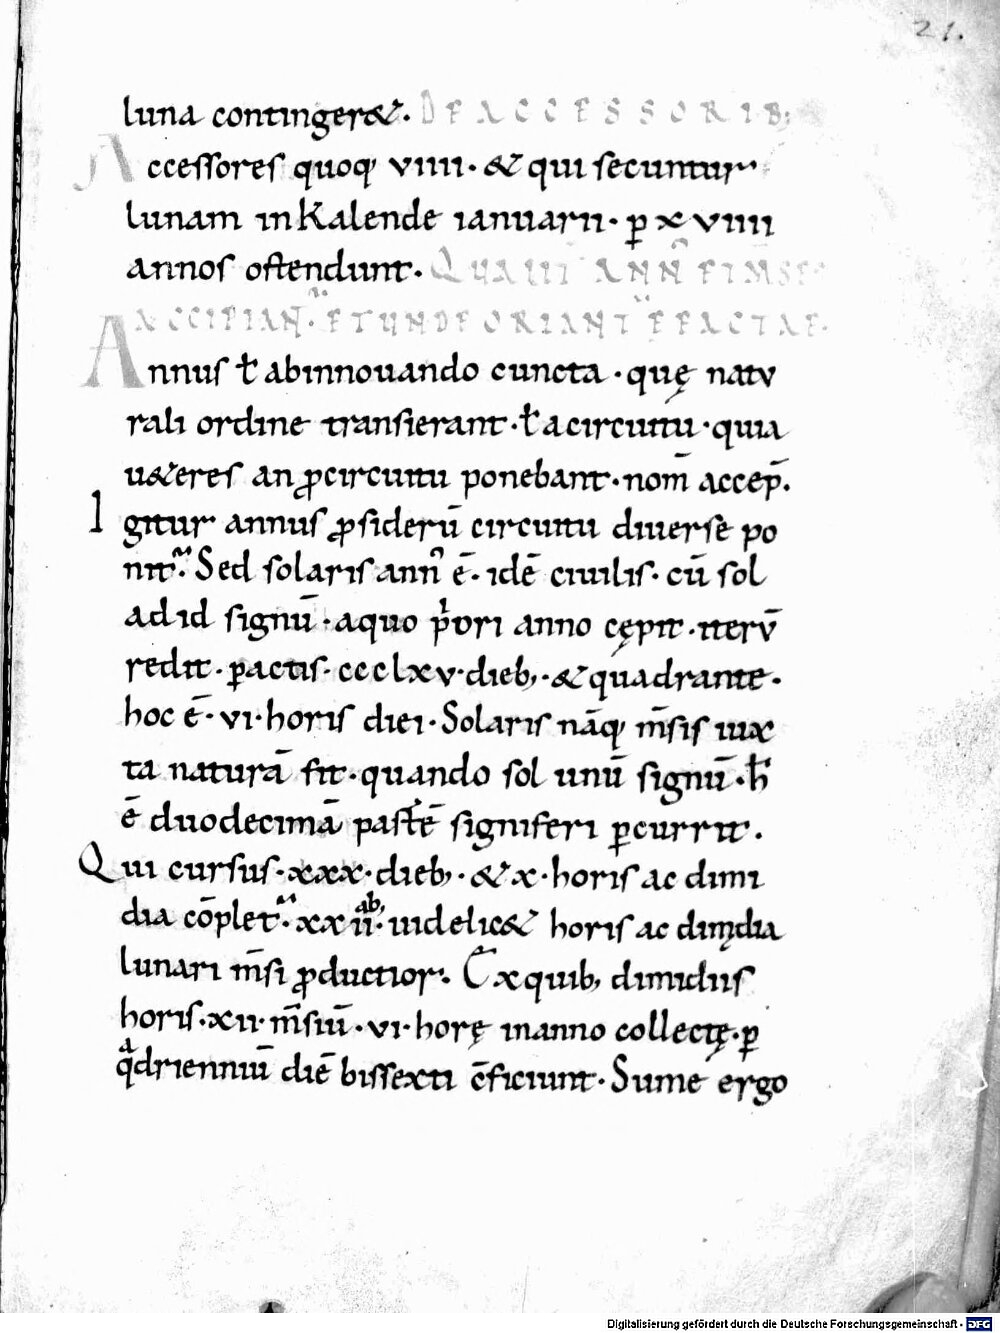 21.
luna conting&er&. DE ACCESSORIB;
Accessores quoq; viiii. & qui secuntur
lunam in kalende ianuarii. p̱ xviiii
annos ostendunt. QUALIT̄ ANN̄
ACCIPIANT̄. ET UNDE ORIANT̄ EPACTAE.
Annus ł abinnouando cuncta. quę natu
rali ordine transierant. ł acircuitu. quia
u&eres an ꝓcircuitu ponebant. nom̄ accep̄.
Igitur annus ꝓsiderū circuitu diuerse po
nit᷑. Sed solaris ann᷒ ē. idē ciuilis. cū sol
ad id signū. aquo p̍ori anno cępit. iterū
redit. ꝑactis. ccclxv. dieb;. & quadrante.
hoc ē. vi. horis diei. Solaris nāq; m̄sis iux
ta naturā fit. quando sol unū signū. h̄
ē duodecimā partē signiferi ꝑcurrit.
Qui cursus. xxx. dieb;. & x. horis ac dimi
dia cōplet᷑. xx ii.ab; uidelic& horis ac dimidia
lunari m̄si ꝓductior. Ex quib; dimidiis
horis. xii. m̄siū. vi. horę inanno collectę. ꝑ
qͣdrienniū diē bissexti c̄ficiunt. Sume ergo
Digitalisierung gefördert durch die Deutsche Forschungsgemeinschaft - DFG